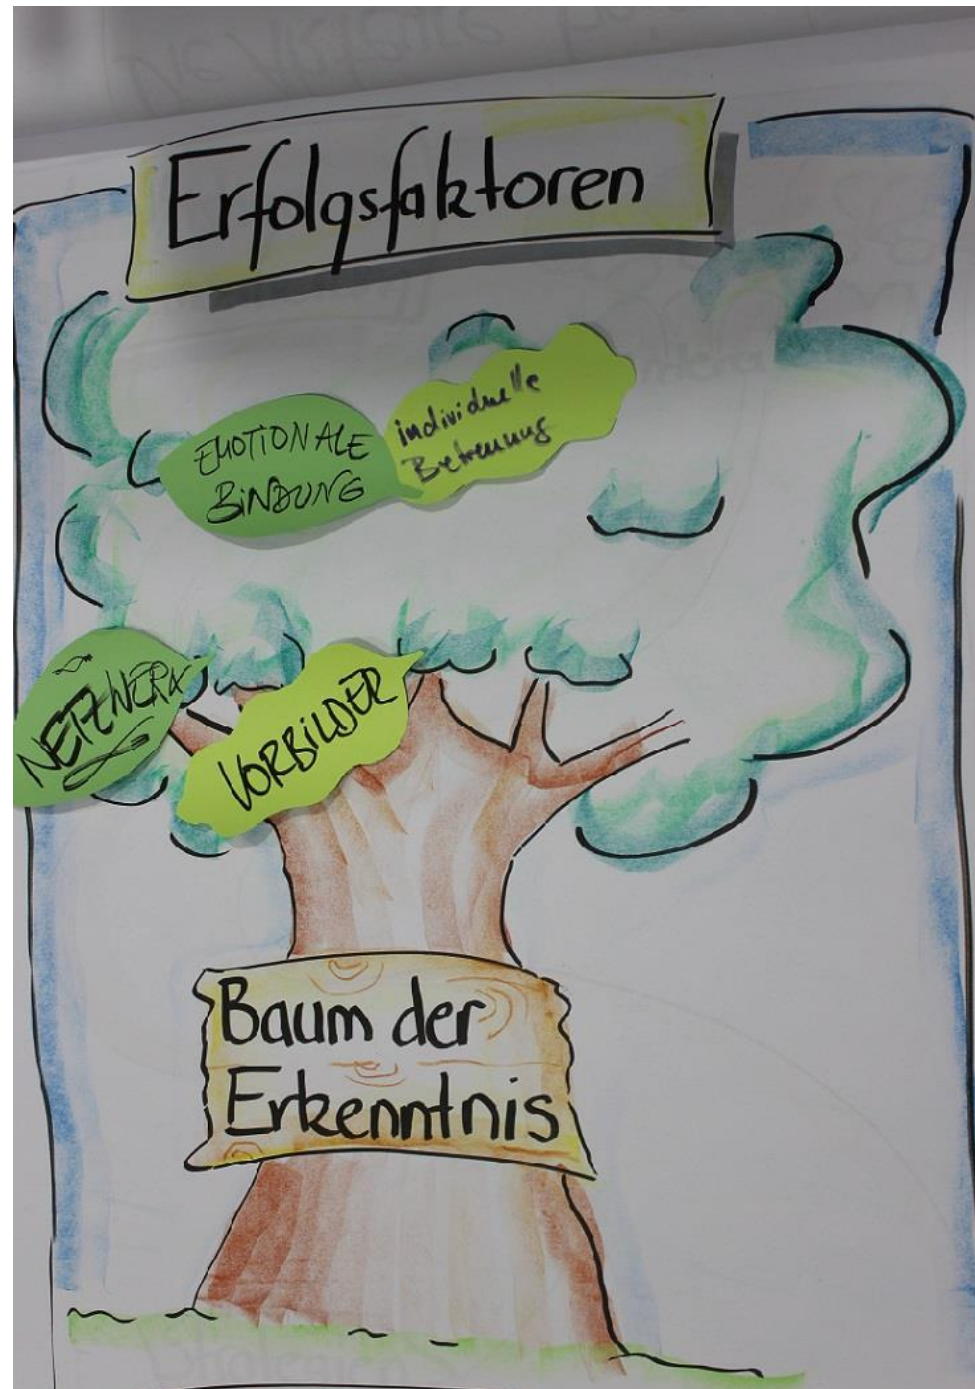 Erfolgsfaktoren
EMOTIONALE
BINDUNG
individuelle
Betreuung
NETZWERK
VORBILDER
Baum der
Erkenntnis